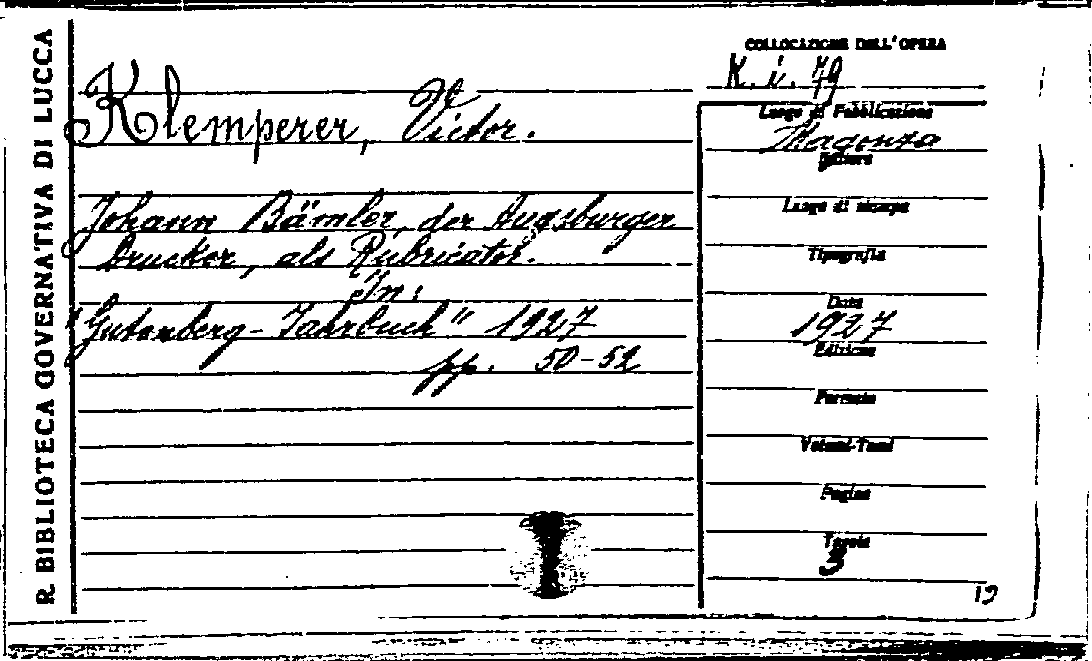 R. BIBLIOTECA GOVERNATIVA DI LUCCA
Klemperer, Victor.
Johann Bämler, der Augsburger
Drucker, als Rubricator.
In:
"Gutenberg-Jahrbuch" 1927
pp. 50-52
COLLOCAZIONE DELL'OPERA
K. i. 79
Luogo di Pubblicazione
Magonza
Editore
Luogo di stampa
Tipografia
Data
1927
Edizione
Formato
Volumi-Tomi
Pagine
Tavole
3
19